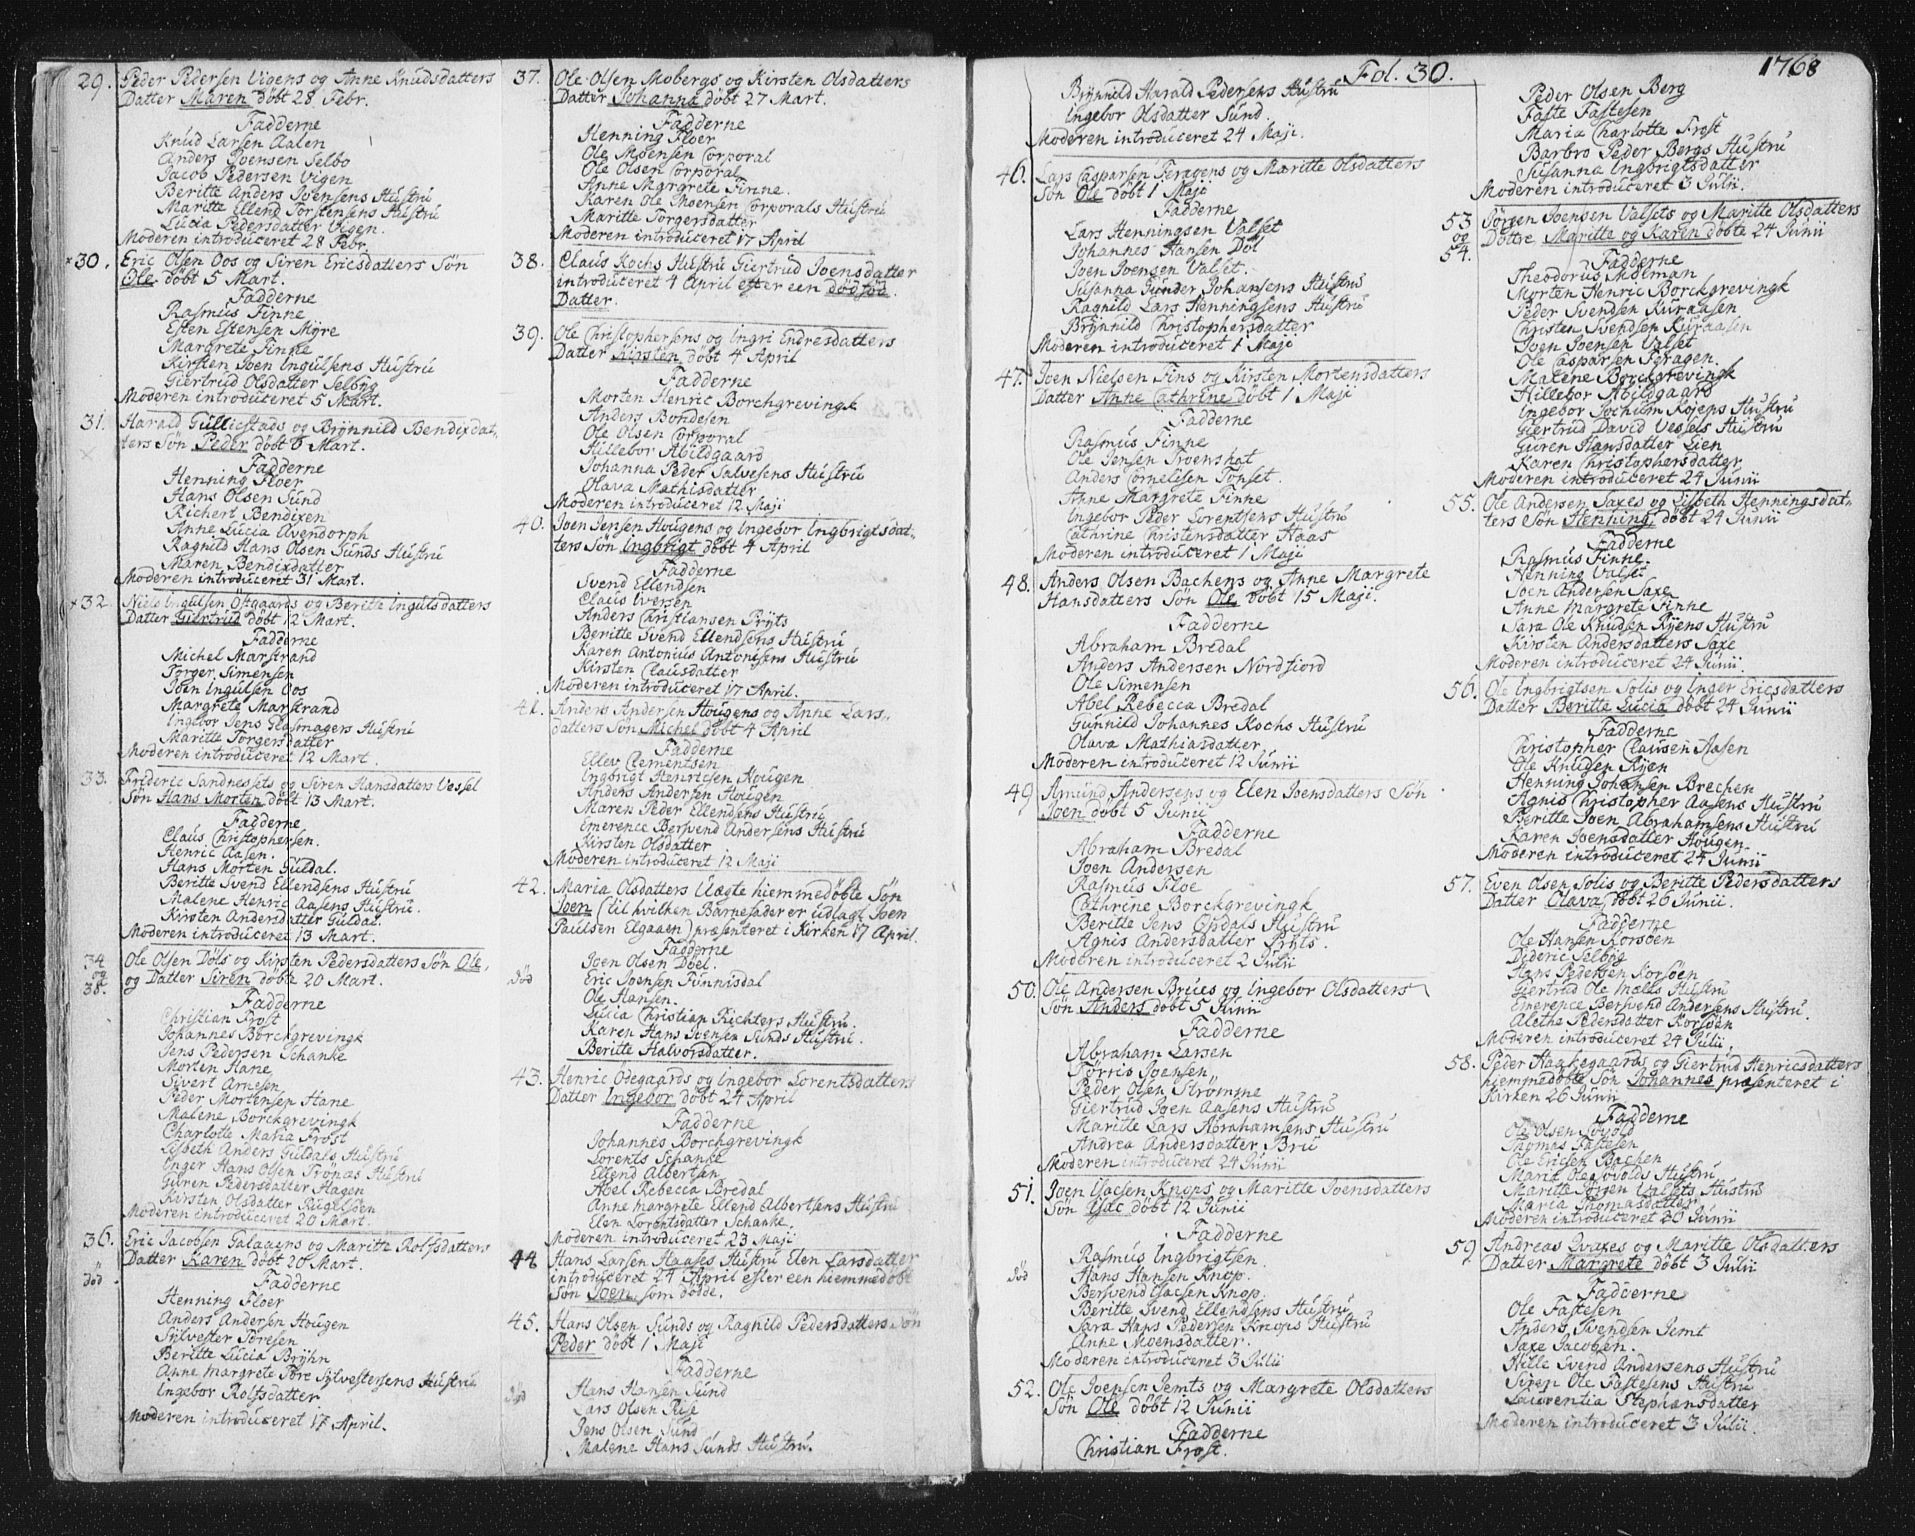 29. Peder Pedersen Vigens og Anne Knudsdatters
Datter Maren döbt 28 Febr.
Fadderne
Knud Larsen Aalen
Anders Joensen Selbo
Jacob Pedersen Vigen
Beritte Anders Joensens Hustru
Maritte Ellend Torstensens Hustru
Lucia Pedersdatter Vigen.
Moderen introduceret 28 Febr.
×30. Eric Olsen Oos og Siren Ericsdatters Sön
Ole döbt 5 Mart.
Fadderne
Rasmus Finne
Esten Estensen Myre
Margrete Finne
Kirsten Joen Ingulsens Hustru
Giertrud Olsdatter Selbyg
Moderen introduceret 5 Mart.
31. Harald Gullicstads og Brynnild Bendixdat-
ters Sön Peder döbt 6 Mart.
Fadderne
Henning Floer
Hans Olsen Sund
Richert Bendixen
Anne Lucia Avendorph
Ragnild Hans Olsen Sunds Hustru
Maren Bendixdatter
Moderen introduceret 31 Mart.
×32 Niels Ingulsen Östgaards og Beritte Ingulsdatters
Datter Giertrud döbt 12 Mart.
Fadderne
Michel Marstrand
Torger Simensen
Joen Ingulsen Oos
Margrete Marstrand
Ingebor Jens Glasmagers Hustru
Maritte Torgersdatter
Moderen introduceret 12 Mart.
33. Frideric Sandnessets og Siren Hansdatters Vessel
Sön Hans Morten döbt 13 Mart.
Fadderne
Claus Christophersen.
Henric Aasen.
Hans Morten Guldal.
Beritte Svend Ellendsens Hustru
Malene Henric Aasens Hustru.
Kirsten Andersdatter Guldal.
Moderen introduceret 13 Mart.
34 og 35. Ole Olsen Döls og Kirsten Pedersdatters Sön Ole,
og Datter Siren döbte 20 Mart.
Fadderne
Christian Frost
Johannes Borchgrevingk
Jens Pedersen Schanke
Morten Hane
Sivert Arnesen
Peder Mortensen Hane
Malene Borckgrevingk
Charlotte Maria Frost
Lisbeth Anders Guldals Hustru
Inger Hans Olsen Trönæs Hustru
Guren Pedersdatter Hagen
Kirsten Olsdatter Rugelsen
Moderen introduceret 20 Mart.
36. Eric Jacobsen Galaaens og Maritte Rolfsdatters
död Datter Karen döbt 20 Mart.
Fadderne
Henning Floer
Anders Andersen Hougen
Sylvester Toresen
Beritte Lucia Bryhn
Anne Margrete Tore Sylvestersens Hustru
Ingebor Rolfsdatter
Moderen introduceret 17 April.
37. Ole Olsen Mobergs og Kirsten Olsdatters
Datter Johanna döbt 27 Mart.
Fadderne
Henning Floer
Ole Moensen Corporal
Ole Olsen Corporal
Anne Margrete Finne.
Karen Ole Moensen Corporals Hustru
Maritte Torgersdatter
Moderen introduceret 17 April
38. Claus Kochs Hustru Giertrud Joensdatter
introduceret 4 April efter een dödföd
Datter.
39. Ole Christophersens og Ingri Endresdatters
Datter Kirsten döbt 4 April
Fadderne
Morten Henric Borchgrevingk
Anders Bondesen
Ole Olsen Corporal
Hillebor Abildgaard
Johanna Peder Salvesens Hustru
Olava Mathisdatter
Moderen introduceret 12 Maji
40. Joen Jensen Hougens og Ingebor Ingbrigtsdat-
ters Sön Ingbrigt döbt 4 April
Fadderne
Svend Ellendsen
Claus Iversen
Anders Christiansen Pryts
Beritte Svend Ellendsens Hustru
Karen Antonius Antonisens Hustru
Kirsten Clausdatter
Moderen introduceret 17 April.
41. Anders Andersen Hougens og Anne Lars-
datters Sön Michel döbt 4 April
Fadderne
Ellev Clementsen
Ingbrigt Henricsen Hougen
Anders Andersen Hougen
Maren Peder Ellendsens Hustru
Emerence Bersvend Andersens Hustru
Kirsten Olsdatter
Moderen introduceret 12 Maji
42. Maria Olsdatters Uægte hiemmedöbte Sön
Joen (til hvilken Barnefader er udlagt Joen
Paulsen Elgaaen) præsenteret i Kirken 17 April.
Fadderne
Joen Olsen Döel.
död Eric Joensen Funnisdal
Ole Hansen.
Lucia Christian Richters Hustru.
Karen Hans Svensen Sunds Hustru.
Beritte Halvorsdatter.
43. Henric Ödegaards og Ingebor Lorentsdatters
Datter Ingebor döbt 24 April
Fadderne
Johannes Borchgrevingk
Lorents Schanke
Ellend Albertsen
Abel Rebecca Bredal
Anne Margrete Ellend Albertsens Hustru
Elen Lorentsdatter Schanke.
Moderen introduceret 23 Maji
44 Hans Larsen Haases Hustru Elen Larsdatter
introduceret 24 April efter een hiemmedöbt
Sön Joen som döde.
45. Hans Olsen Sunds og Ragnild Pedersdatters Sön
Peder döbt 1 Maji
Fadderne
död Hans Hansen Sund
Lars Olsen Rise
Jens Olsen Sund
Malene Hans Sunds Hustru.
Fol. 30.
1768
Brynnild Harald Pedersens Hustru
Ingebor Olsdatter Sund.
Moderen introduceret 24 Maji.
46. Lars Casparsen Feragens og Maritte Olsdatters
Sön Ole döbt 1 Maji
Fadderne
Lars Henningsen Valset
Johannes Hansen Döl
Joen Joensen Valset.
Susanna Gunder Johansens Hustru
Ragnild Lars Henningsens Hustru
Brynnild Christophersdatter
Moderen introduceret 1 Maji
47. Joen Nielsen Fins og Kirsten Mortensdatters
Datter Anne Cathrine döbt 1 Maji
Fadderne
Rasmus Finne
Ole Jensen Troenshat
Anders Cornelisen Tönset.
Anne Margrete Finne
Ingebor Peder Lorentsens Hustru
Cathrine Christensdatter Haas
Moderen introduceret 1 Maji
48. Anders Olsen Bachens og Anne Margrete
Hansdatters Sön Ole döbt 15 Maji.
Fadderne
Abraham Bredal
Anders Andersen Nordfiord
Ole Simensen
Abel Rebecca Bredal
Gunnild Johannes Kochs Hustru
Olava Mathiasdatter
Moderen introduceret 12 Junii
49 Amund Andersens og Elen Joensdatters Sön
Joen döbt 5 Junii
Fadderne
Abraham Bredal
Joen Andersen
Rasmus Floe
Cathrine Borckgrevingk
Beritte Jens Opdals Hustru
Agnis Andersdatter Pryts.
Moderen introduceret 2 Julii
50. Ole Andersen Brues og Ingebor Olsdatters
Sön Anders döbt 5 Junii
Fadderne
Abraham Larsen
Torris Joensen
Peder Olsen Strömme
Giertrud Joen Aasens Hustru
Maritte Lars Abrahamsens Hustru
Andrea Andersdatter Bru
Moderen introduceret 24 Junii
51. Joen Isacsen Knops og Maritte Joensdatters
Sön Isac döbt 12 Junii
Fadderne
Rasmus Ingbrigtsen
död Hans Hansen Knop.
Bersvend Isacsen Knop
Beritte Svend Ellendsens Hustru
Sara Hans Pedersen Knops Hustru
Anne Moensdatter
Moderen introduceret 3 Julii
52. Ole Joensen Jemts og Margrete Olsdatters
Sön Ole döbt 12 Junii
Fadderne
Christian Frost.
Peder Olsen Berg
Faste Fastesen
Maria Charlotte Frost
Barbro Peder Bergs Hustru
Susanna Ingbrigtsdatter
Moderen introduceret 3 Julii.
53 og 54. Jörgen Joensen Valsets og Maritte Olsdatters
Döttre Maritta og Karen döbte 24 Junii
Fadderne
Theodorus Molman
Morten Henric Borckgrevingk
Peder Svendsen Kuraasen
Christen Svendsen Kuraasen
Joen Joensen Valset
Ole Casparsen Feragen
Malene Borckgrevingk
Hillebor Abildgaard
Ingebor Jochum Kojens Hustru
Giertrud David Vessels Hustru
Guren Hansdatter Lien
Karen Christophersdatter
Moderen introduceret 24 Junii
55. Ole Andersen Saxes og Lisbeth Henningsdat-
ters Sön Henning döbt 24 Junii
Fadderne
Rasmus Finne.
Henning Valset
Joen Andersen Saxe
Anne Margrete Finne
Sara Ole Knudsen Ryens Hustru
Kirsten Andersdatters Saxe
Moderen introduceret 24 Junii
56. Ole Ingbrigtsen Solis og Inger Ericsdatters
Datter Beritte Lucia döbt 24 Junii
Fadderne
Christopher Clausen Aasen
Ole Knudsen Ryen
Henning Johansen Brechen
Agnis Christopher Aasens Hustru
Beritte Joen Abrahamsens Hustru
Karen Joensdatter Hougen
Moderen introduceret 24 Junii
57. Even Olsen Solis og Beritte Pedersdatters
Datter Olava döbt 26 Junii.
Fadderne
Ole Hansen Korsöen
Dideric Selbyg
Hans Pedersen Korsöen
Giertrud Ole Mælts Hustru
Emerence Bersvend Andersens Hustru.
Alethe Pedersdatter Korsöen
Moderen introduceret 24 Julii.
58. Peder Hagkegaards og Giertrud Henricsdatters
hiemmedöbte Sön Johannes præsenteret i
Kirken 26 Junii
Fadderne
Ole Olsen Sund
Thomas Fastesen
Ole Ericsen Bachen
Maria Hans Hustru
Maritte Jörgen Valsets Hustru
Maria Thomasdatter
Moderen introduceret 30 Junii
59 Andreas Qvaxes og Maritte Olsdatters
Datter Margrete döbt 3 Julii
Fadderne
Ole Fastesen
Anders Svendsen Jemt
Saxe Jacobsen.
Hille Svend Andersens Hustru
Siren Ole Fastesens Hustru
Lauventia Stephansdatter
Moderen introduceret 3 Julii.